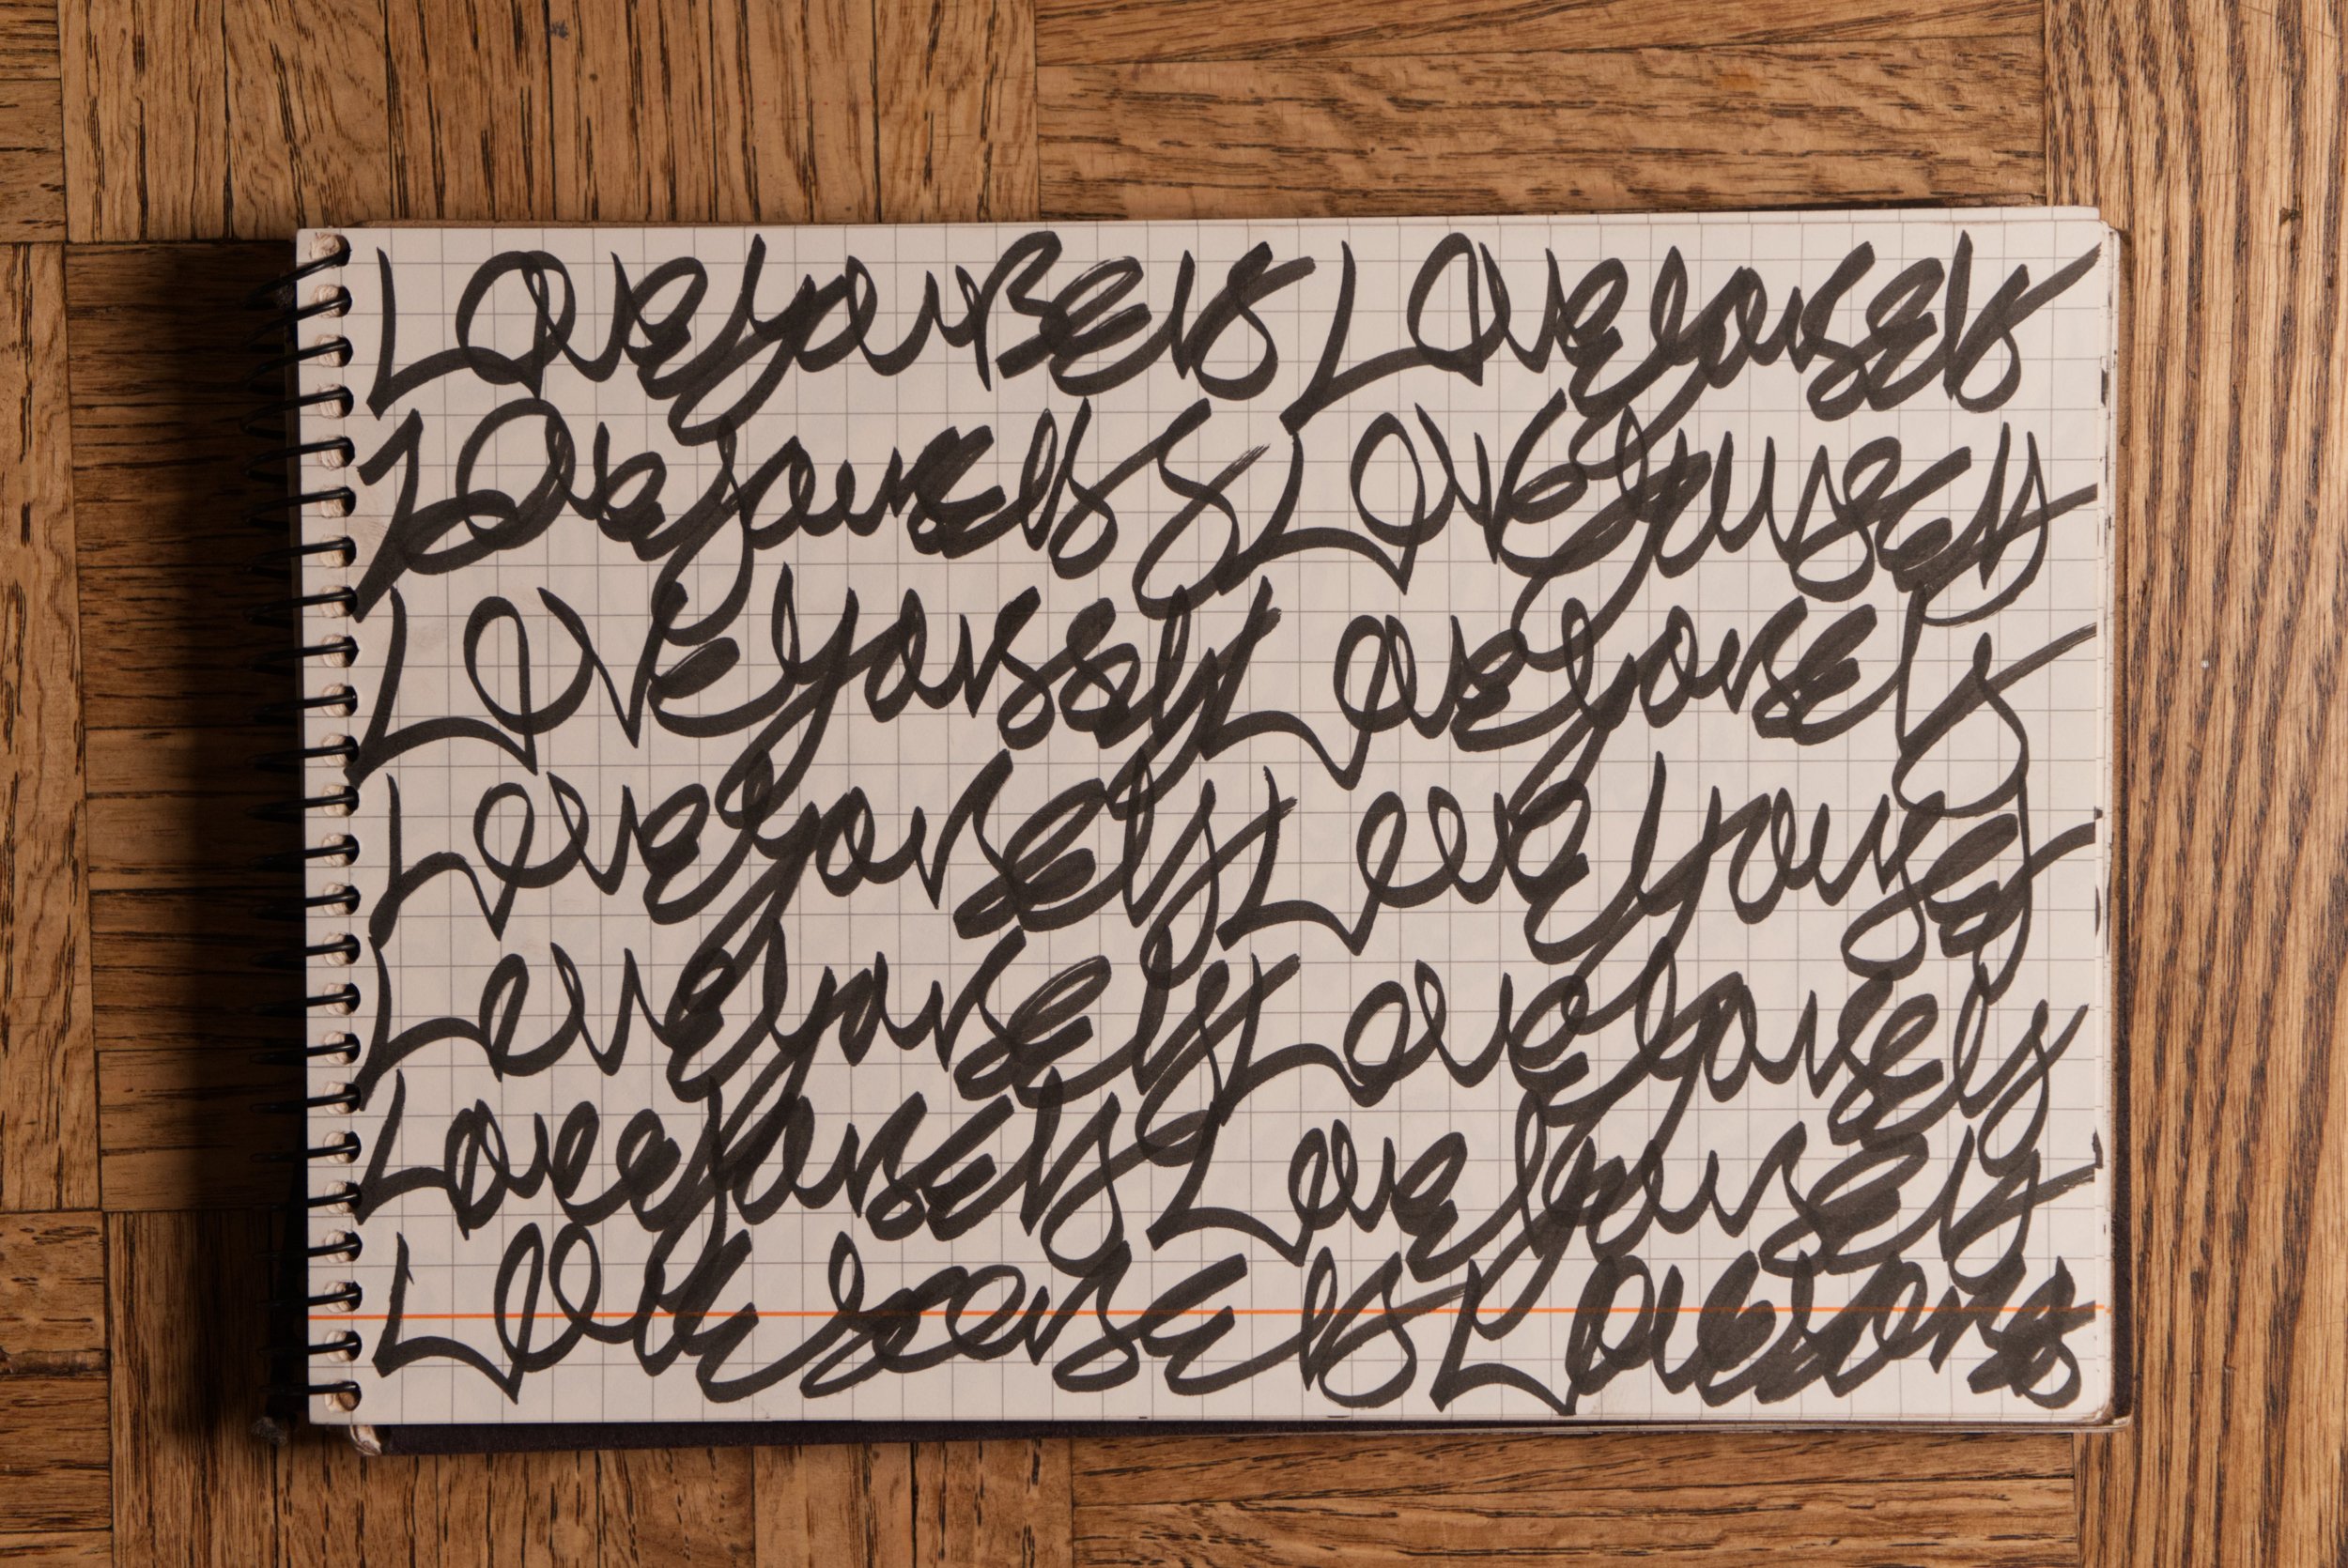 Love yourself Love yourself
Love yourself Love yourself
Love yourself Love yourself
Love yourself Love yourself
Love yourself Love yourself
Love yourself Love yourself
Love yourself Love